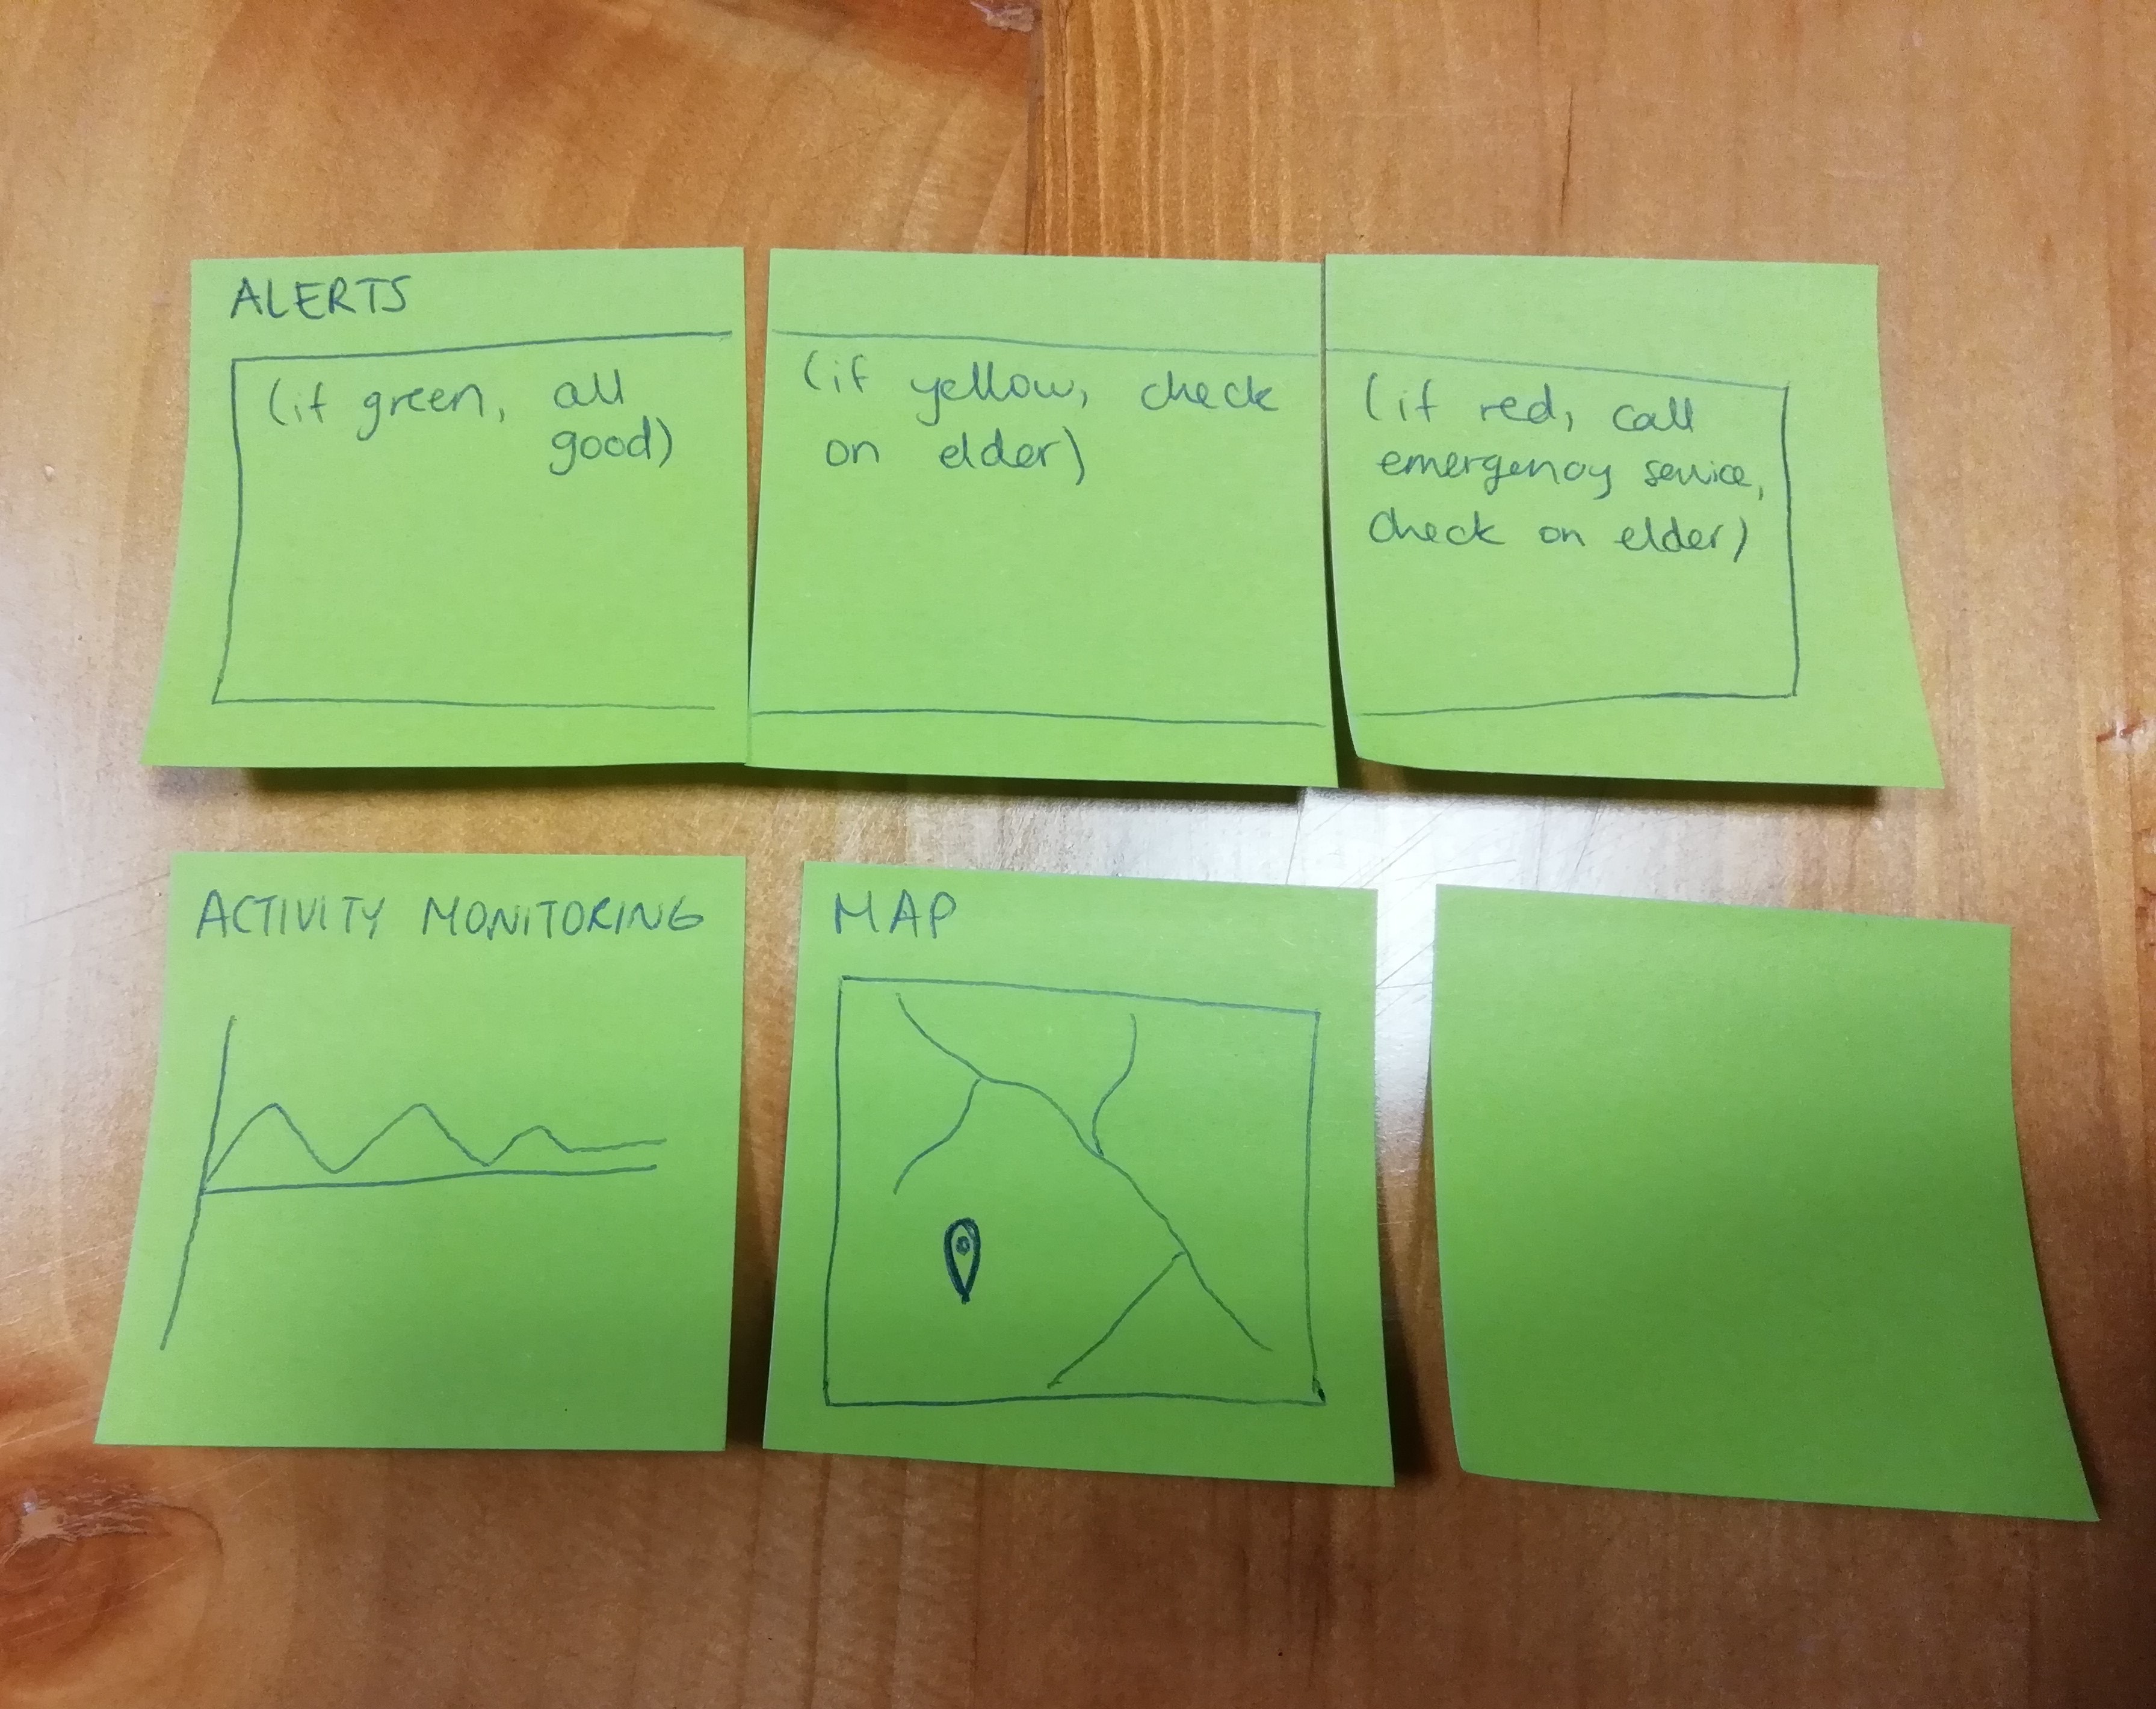 ALERTS
(if green, all
good)
(if yellow, check
on elder)
(if red, call
emergency service,
check on elder)
ACTIVITY MONITORING
MAP